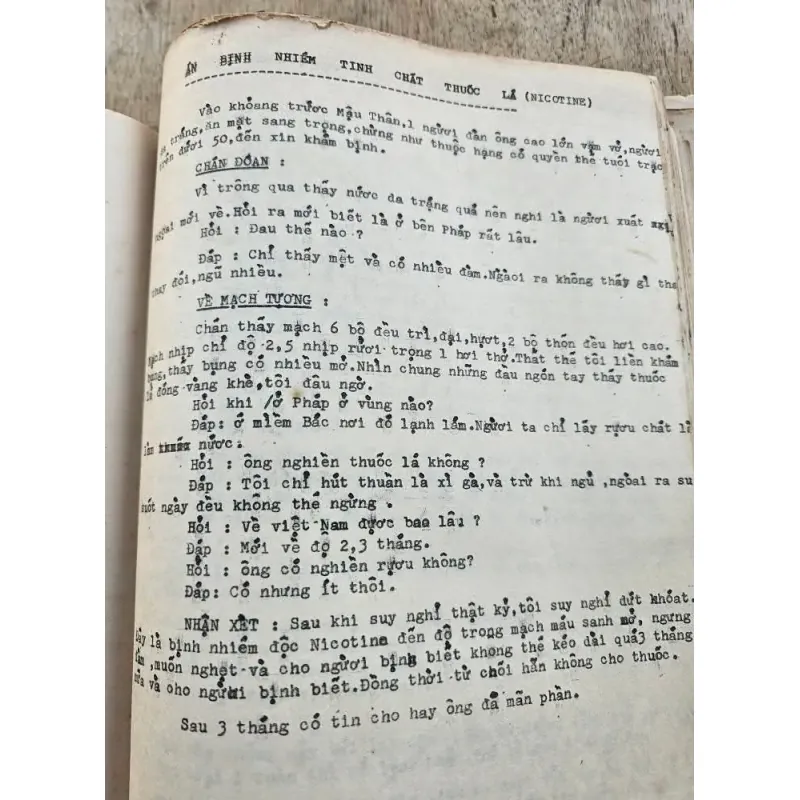 ẤN BỊNH NHIỄM TINH CHẤT THUỐC LÁ (NICOTINE)
Vào khỏang trước Mậu Thân,1 người đàn ông cao lớn vạm vở,người
da trắng,ăn mặt sang trọng,chừng như thuộc hạng có quyền thế tuổi trạc
trên dưới 50,đến xin khám bịnh.
CHẨN ĐOÁN :
Vì trông qua thấy nước da trắng quá nên nghi là người xuất
ngoại mới về.Hỏi ra mới biết là ở bên Pháp rất lâu.
Hỏi : Đau thế nào ?
Đáp : Chỉ thấy mệt và có nhiều đàm.Ngòai ra không thấy gì tha
thay đổi,ngũ nhiều.
VỀ MẠCH TƯỢNG :
Chẩn thấy mạch 6 bộ đều trì,đại,hượt,2 bộ thốn đều hơi cao.
Mạch nhịp chỉ độ 2,5 nhịp rưởi trọng 1 hơi thở.Thất thế tôi liền khám
bụng,thấy bụng có nhiều mở.Nhìn chung những đầu ngón tay thấy thuốc
lá đóng vàng khè,tôi đâu ngờ.
Hỏi khi /ở Pháp ở vùng nào?
Đáp: ở miềm Bắc nơi đó lạnh lắm.Người ta chỉ lấy rượu chát là
làm nước.
Hỏi : ông nghiền thuốc lá không ?
Đáp : Tôi chỉ hút thuần là xì gà,và trừ khi ngủ ,ngoài ra su
suốt ngày đều không thể ngừng .
Hỏi : Về việt Nam được bao lâu ?
Đáp : Mới về độ 2,3 tháng.
Hỏi : ông có nghiền rượu không?
Đáp: Có nhưng ít thôi.
NHẬN XÉT : Sau khi suy nghỉ thật kỷ,tôi suy nghỉ dứt khóat.
Đây là bịnh nhiễm độc Nicotine đến độ trong mạch máu sanh mở, ngưng
lắm ,muốn nghẹt và cho người bịnh biết không thể kéo dài quá3 tháng
nửa và oho người bịnh biết.Đồng thời từ chối hẳn không cho thuốc.
Sau 3 tháng có tin cho hay ông đã mãn phần.